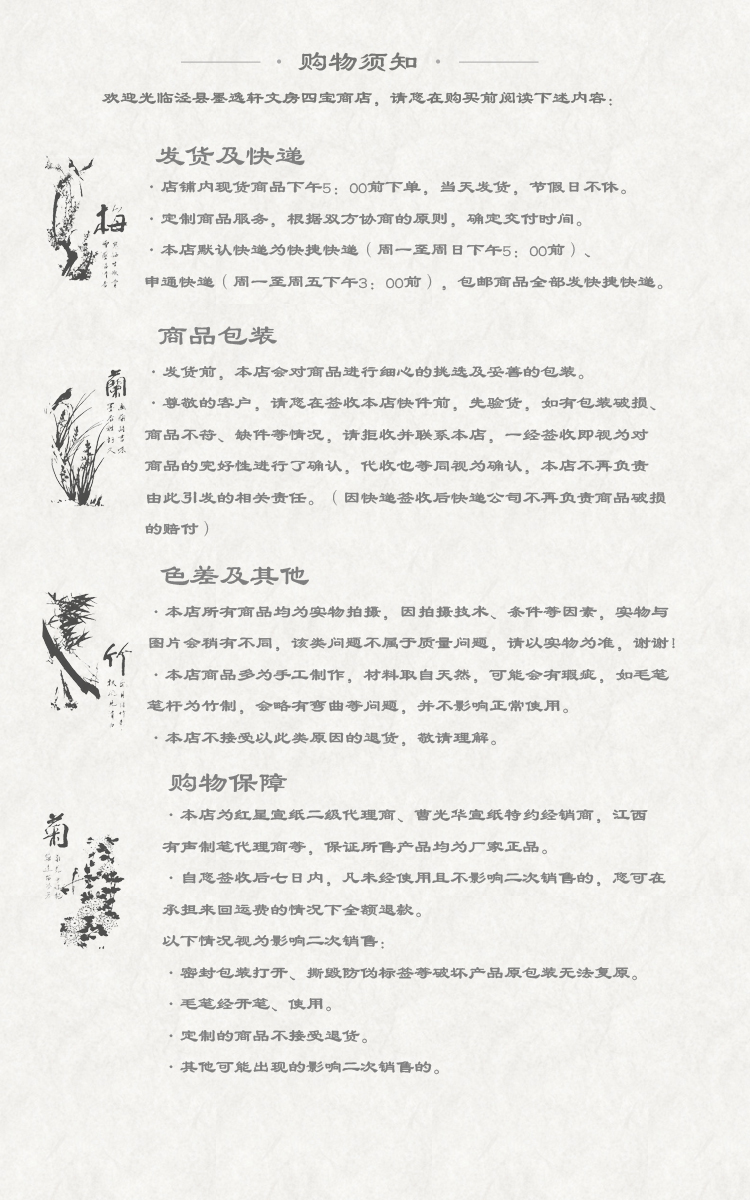 购物须知
欢迎光临泾县墨逸轩文房四宝商店，请您在购买前阅读下述内容：
发货及快递
·店铺内现货商品下午5：00前下单，当天发货，节假日不休。
·定制商品服务，根据双方协商的原则，确定交付时间。
·本店默认快递为快捷快递（周一至周日下午5：00前）、
申通快递（周一至周五下午3：00前），包邮商品全部发快捷快递。
梅
商品包装
·发货前，本店会对商品进行细心的挑选及妥善的包装。
·尊敬的客户，请您在签收本店快件前，先验货，如有包装破损、
商品不符、缺件等情况，请拒收并联系本店，一经签收即视为对
商品的完好性进行了确认，代收也等同视为确认，本店不再负责
由此引发的相关责任。（因快递签收后快递公司不再负责商品破损
的赔付）
蘭
色差及其他
·本店所有商品均为实物拍摄，因拍摄技术、条件等因素，实物与
图片会稍有不同，该类问题不属于质量问题，请以实物为准，谢谢！
·本店商品多为手工制作，材料取自天然，可能会有瑕疵，如毛笔
笔杆为竹制，会略有弯曲等问题，并不影响正常使用。
·本店不接受以此类原因的退货，敬请理解。
竹
购物保障
·本店为红星宣纸二级代理商、曹光华宣纸特约经销商，江西
有声制笔代理商等，保证所售产品均为厂家正品。
·自您签收后七日内，凡未经使用且不影响二次销售的，您可在
承担来回运费的情况下全额退款。
以下情况视为影响二次销售：
·密封包装打开、撕毁防伪标签等破坏产品原包装无法复原。
·毛笔经开笔、使用。
·定制的商品不接受退货。
·其他可能出现的影响二次销售的。
菊